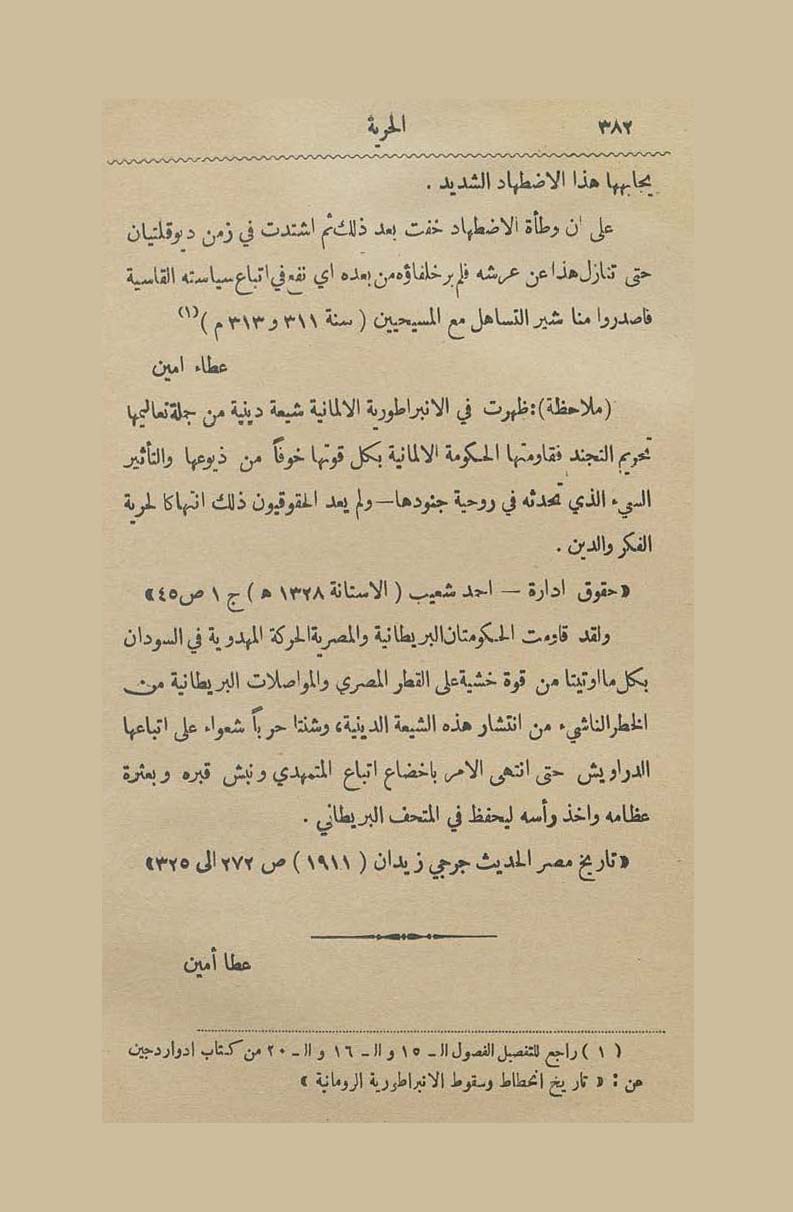 ٣٨٢ الحرية
يجابهها هذا الاضطهاد الشديد .
على ان وطأة الاضطهاد خفت بعد ذلك ثم اشتدت في زمن ديوقلتيان
حتى تنازل هذا عن عرشه فلم ير خلفاؤه من بعده اي نفع في اتباع سياسته القاسية
فاصدروا مناشير التساهل مع المسيحيين ( سنة ٣١١ و ٣١٣ م ) (١)
عطاء امين
(ملاحظة) : ظهرت في الانبراطورية الالمانية شيعة دينية من جملة تعاليمها
تحريم التجند فقاومتها الحكومة الالمانية بكل قوتها خوفاً من ذيوعها والتأثير
السيء الذي تحدثه في روحية جنودها — ولم يعد الحقوقيون ذلك انتهاكا لحرية
الفكر والدين .
«حقوق ادارة — احمد شعيب ( الاستانة ١٣٢٨ ه ) ج ١ ص ٤٥»
ولقد قاومت الحكومتان البريطانية والمصرية الحركة المهدوية في السودان
بكل ما اوتيتا من قوة خشية على القطر المصري والمواصلات البريطانية من
الخطر الناشيء من انتشار هذه الشيعة الدينية، وشنتا حرباً شعواء على اتباعها
الدراويش حتى انتهى الامر باخضاع اتباع المتمهدي ونبش قبره وبعثرة
عظامه واخذ رأسه ليحفظ في المتحف البريطاني .
«تاريخ مصر الحديث جرجي زيدان ( ١٩١١ ) ص ٢٧٢ الى ٣٢٥»
عطا أمين
( ١ ) راجع للتفصيل الفصول الـ ١٥ و الـ ١٦ و الـ ٢٠ من كتاب ادوارد جين
عن : « تاريخ انحطاط وسقوط الانبراطورية الرومانية »